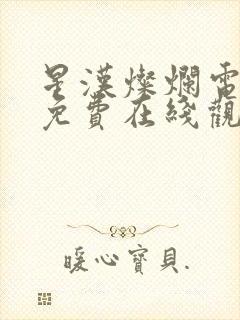 星漢燦爛電
免費在綫觀
暖心寶貝.